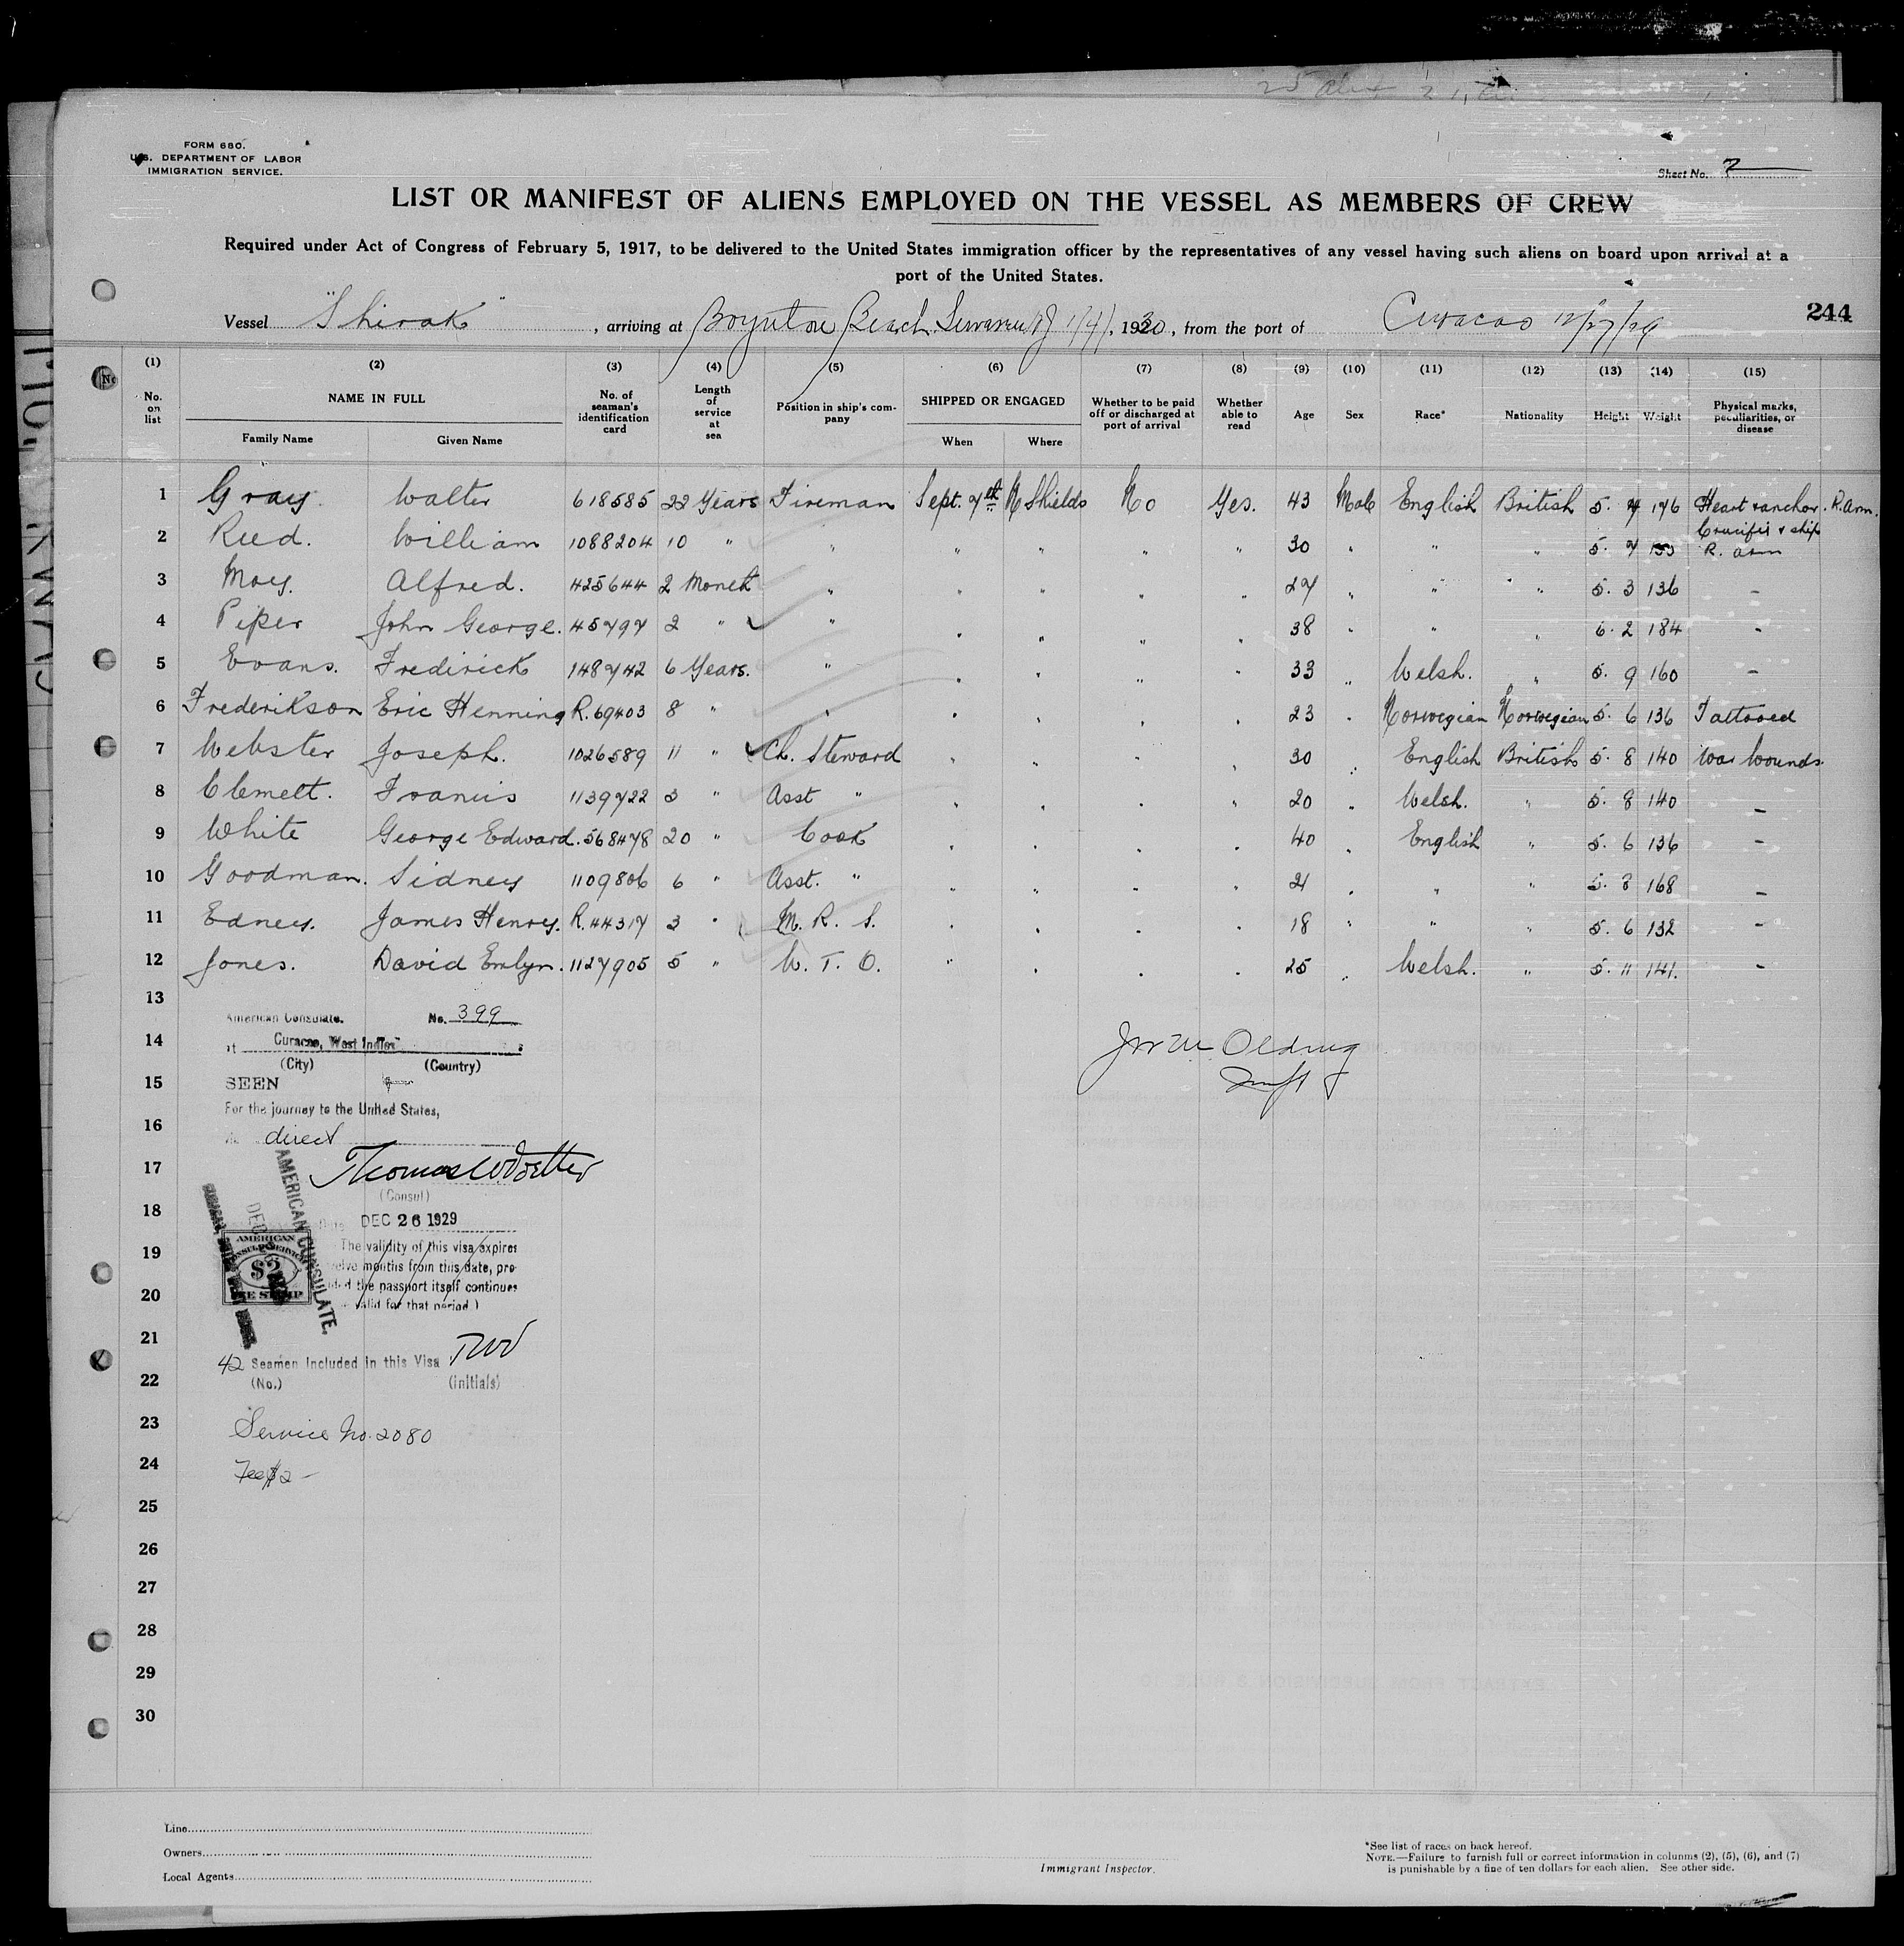 FORM 680.
U.S. DEPARTMENT OF LABOR
IMMIGRATION SERVICE.
Sheet No. 7
LIST OR MANIFEST OF ALIENS EMPLOYED ON THE VESSEL AS MEMBERS OF CREW
Required under Act of Congress of February 5, 1917, to be delivered to the United States immigration officer by the representatives of any vessel having such aliens on board upon arrival at a
port of the United States.
244
Vessel "Shirak", arriving at Boynton Beach 1/4/, 1930, from the port of Curacao 12/27/29
(1) (2) (3) (4) (5) (6) (7) (8) (9) (10) (11) (12) (13) (14) (15)
No. on list NAME IN FULL No. of seaman's identification card Length of service at sea Position in ship's company SHIPPED OR ENGAGED Whether to be paid off or discharged at port of arrival Whether able to read Age Sex Race* Nationality Height Weight Physical marks, peculiarities, or disease
Family Name Given Name When Where
1 Gray. Walter 618585 22 Years Fireman Sept. 7th N Shields No Yes. 43 Male English British 5. 7 176 Heart & anchor. R. Arm.
2 Reed. William 1088204 10 " " " " " " 30 " " " 5. 7 Crucifix & ship R. arm
3 Moy. Alfred. 425644 2 Month " " " " " 27 " " " 5. 3 136 -
4 Piper John George. 45797 2 " " " " " " 38 " " " 6. 2 184 -
5 Evans. Frederick 148742 6 Years. " " " " " 33 " Welsh. " 5. 9 160 -
6 Frederikson Eric Henning R. 69403 8 " " " " " " 23 " Norwegian Norwegian 5. 6 136 Tattooed
7 Webster Joseph. 1026589 11 " Ch. Steward " " " " 30 " English British 5. 8 140 War Wounds.
8 Clemett. Francis 1139722 3 " Asst " " " " " 20 " Welsh. " 5. 8 140 -
9 White George Edward. 568478 20 " Cook " " " " 40 " English " 5. 6 136 -
10 Goodman. Sidney 1109806 6 " Asst. " " " " " 21 " " " 5. 8 168 -
11 Edney. James Henry. R. 44317 3 " M. R. S. " " " " 18 " " " 5. 6 132 -
12 Jones. David Emlyn. 1127905 5 " W. T. O. " " " " 25 " Welsh. " 5. 11 141. -
13
American Consulate. No. 399
14
at Curacao, West Indies
(City) (Country)
15
SEEN
For the journey to the United States,
16
direct
17
(Consul)
18
DEC 26 1929
AMERICAN CONSULATE.
AMERICAN
$2
19
The validity of this visa expires
months from this date, pro-
the passport itself continues
20
valid for that period.)
21
42 Seamen Included in this Visa
22
(No.) (initials)
23
Service No. 2080
24
Fee $2 -
25
26
27
28
29
30
Line
Owners
Local Agents
Immigrant Inspector.
*See list of races on back hereof.
NOTE.—Failure to furnish full or correct information in columns (2), (5), (6), and (7)
is punishable by a fine of ten dollars for each alien. See other side.